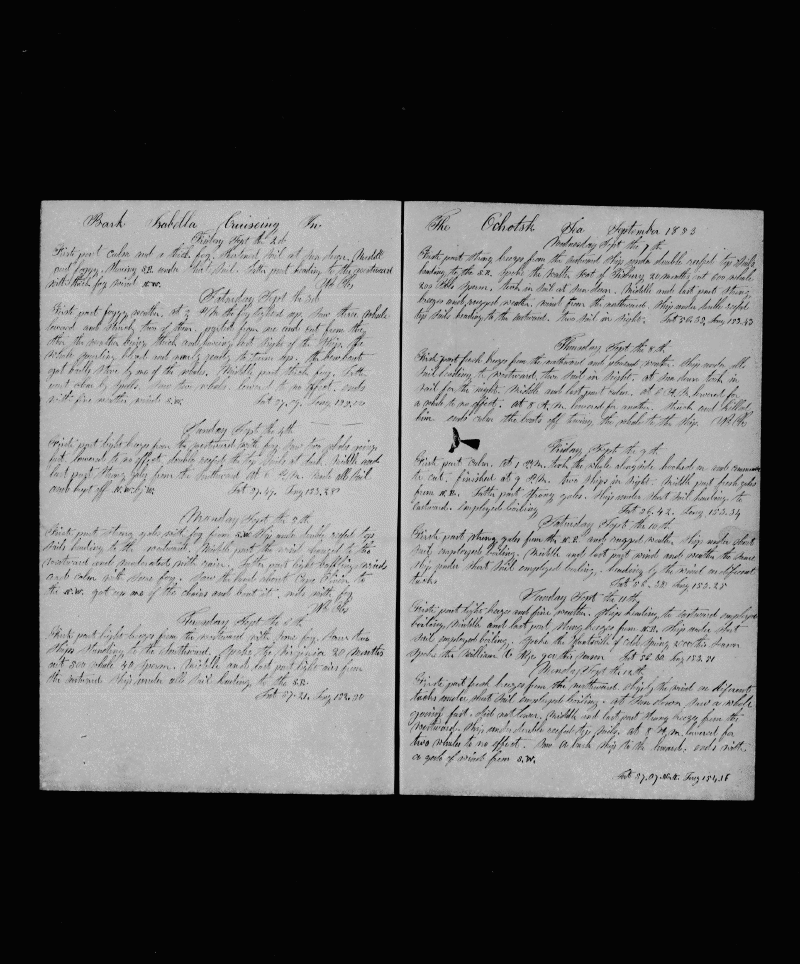 Bark Isabella Cruiseing In
Friday Sept the 2d
Firste part calm and a thick fog. Shortened sail at Sun down. Middle
and foggy. Blowing S.E. under short sail. Latter part heading to the westward
with thick fog wind N.W.
Saturday Sept the 3d
Firste part foggy weather. at 3 P.M. the fog lighted up. Saw three whales
lowered and struck two of them.
other the weather being thick and foggy lost sight of the Ship. the
whale spouting blood and nearly ready to turn up. the boat
got badly stove by one of the whales. Middle part thick fog. Latter
part calm by spells. Saw two whales lowered to no effect. ends
with fine weather wind S.W. Lat 57.07. Long 153.
Sunday Sept the 4th
Firste part light breezes from the westward with fog. Saw two whales going
fast lowered to no effect. double reefed the top sails at dark. Middle and
last part strong gales from the Southward. at 6 A.M. made all sail
and kept off N.W. by W. Lat 57.47. Long 153.
Monday Sept the 5th
Firste part strong gales with fog from S.W. Ship under double reefed top
sails heading to the westward. Middle part the wind hauled to the
westward and moderated with rain. Latter part light baffling winds
and calm with some fog. Saw the land about
the N.W. got up one of the chains and bent it. ends with fog
Tuesday Sept the 6th
Firste part light breezes from the westward with some fog. Saw two
Ships Standing to the Southward. Spoke the Virginian 20 Months
out 500 whale 40 sperm. Middle and last part light airs from
the westward Ship under all sail heading to the S.E.
Lat 57.21. Long 152.20
The Ochotsk Sea September 1853
Wednesday Sept the 7th
Firste part strong breezes from the westward Ship under double reefed top sails
heading to the S.E. Spoke the Walter Scot of Edgartown 20 months out 600 whale
200 bbls Sperm. Took in sail at Sun down. Middle and last part strong
breezes and rugged weather. wind from the northward. Ship under double reefed
top sails heading to the eastward. two sail in sight. Lat 56.53, Long 153.43
Thursday Sept the 8th
Firste part fresh breezes from the northward and pleasant weather. Ship under all
sail heading to westward, two sail in sight. at Sun down took in
sail for the night. Middle and last part calm. at 6 A.M. lowered for
a whale to no effect. at 8 A.M. lowered for another. Struck and killed
him. ends calm the boats off towing the whale to the Ship.
Friday Sept the 9th
Firste part calm. At 1 P.M. took the whale alongside hooked on and commenced
to cut. finished at 9 P.M. two ships in sight. Middle part fresh gales
from N.E. Latter part strong gales. Ship under short sail heading to
eastward. Employed boiling Lat 56.42. Long 153.34
Saturday Sept the 10th
Firste part strong gales from the N.E. and rugged weather. Ship under short
sail employed boiling. Middle and last part wind and weather the same
Ship under short sail employed boiling. heading by the wind on different
tacks Lat 56.38 Long 153.25
Sunday Sept the 11th
Firste part light breezes and fine weather. Ship heading to eastward employed
boiling. Middle and last part strong breezes from N.E. Ship under short
sail employed boiling. Spoke the of Cold Spring 2 this season
Spoke the William this season Lat 56.50 Long 153.21
Monday Sept the 12th
Firste part fresh breezes from the northward. Ship by the wind on different
tacks under short sail employed boiling. At Sun down saw a whale
going fast. Did not lower. Middle and last part strong breezes from the
westward. Ship under double reefed top sails. At 8 A.M. lowered for
two whales to no effect. Saw a bark ship to the leward. ends with
a gale of wind from S.W.
Lat 57.07 North. Long 154.18